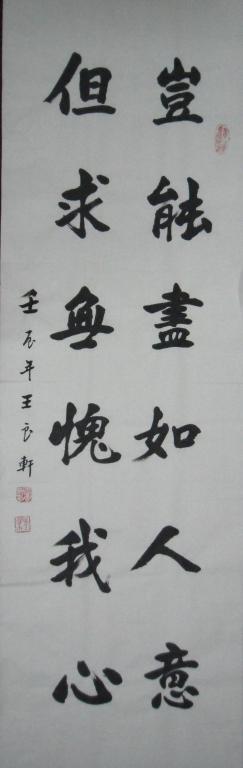 豈能盡如人意
但求無愧我心
壬辰年王良軒